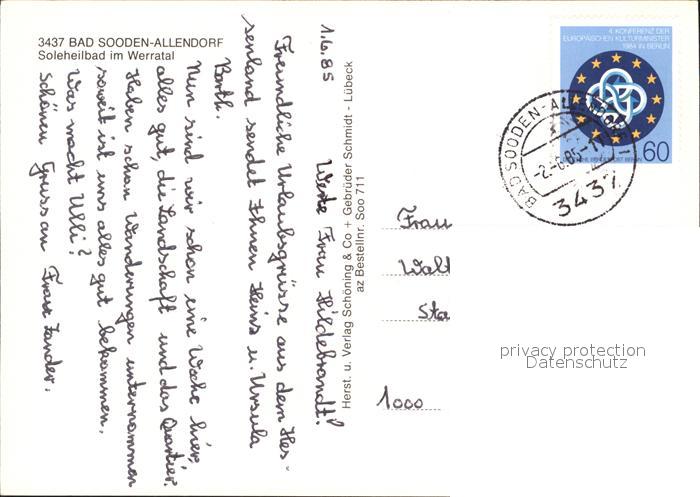 3437 BAD SOODEN-ALLENDORF
Soleheilbad im Werratal
1.6.85
Werte Frau Hildebrandt!
Freundliche Urlaubsgrüsse aus dem Hes-
senland sendet Ihnen Heinz u. Ursula
Barth.
Nun sind wir schon eine Woche hier,
alles gut, die Landschaft und das Quartier.
Haben schon Wanderungen unternommen
soweit ist uns alles gut bekommen.
Was macht Ulli?
Schönen Gruss an Frau Zander.
Herst. u. Verlag Schöning & Co + Gebrüder Schmidt - Lübeck
az Bestellnr. Soo 711
4. KONFERENZ DER
EUROPÄISCHEN KULTURMINISTER
1984 IN BERLIN
DEUTSCHE BUNDESPOST BERLIN 60
BAD SOODEN-ALLENDORF 1
-2.-6.85-11
3437
Frau
Walt
Sta
1000
privacy protection
Datenschutz